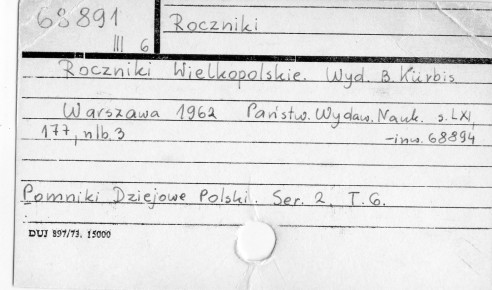 68891
III 6
Roczniki
Roczniki Wielkopolskie. Wyd. B. Kürbis
Warszawa 1962 Państw. Wydaw. Nauk. s. LXI,
177, nlb. 3 -inw. 68894
Pomniki Dziejowe Polski. Ser. 2, T. 6.
DUJ 897/73. 15000